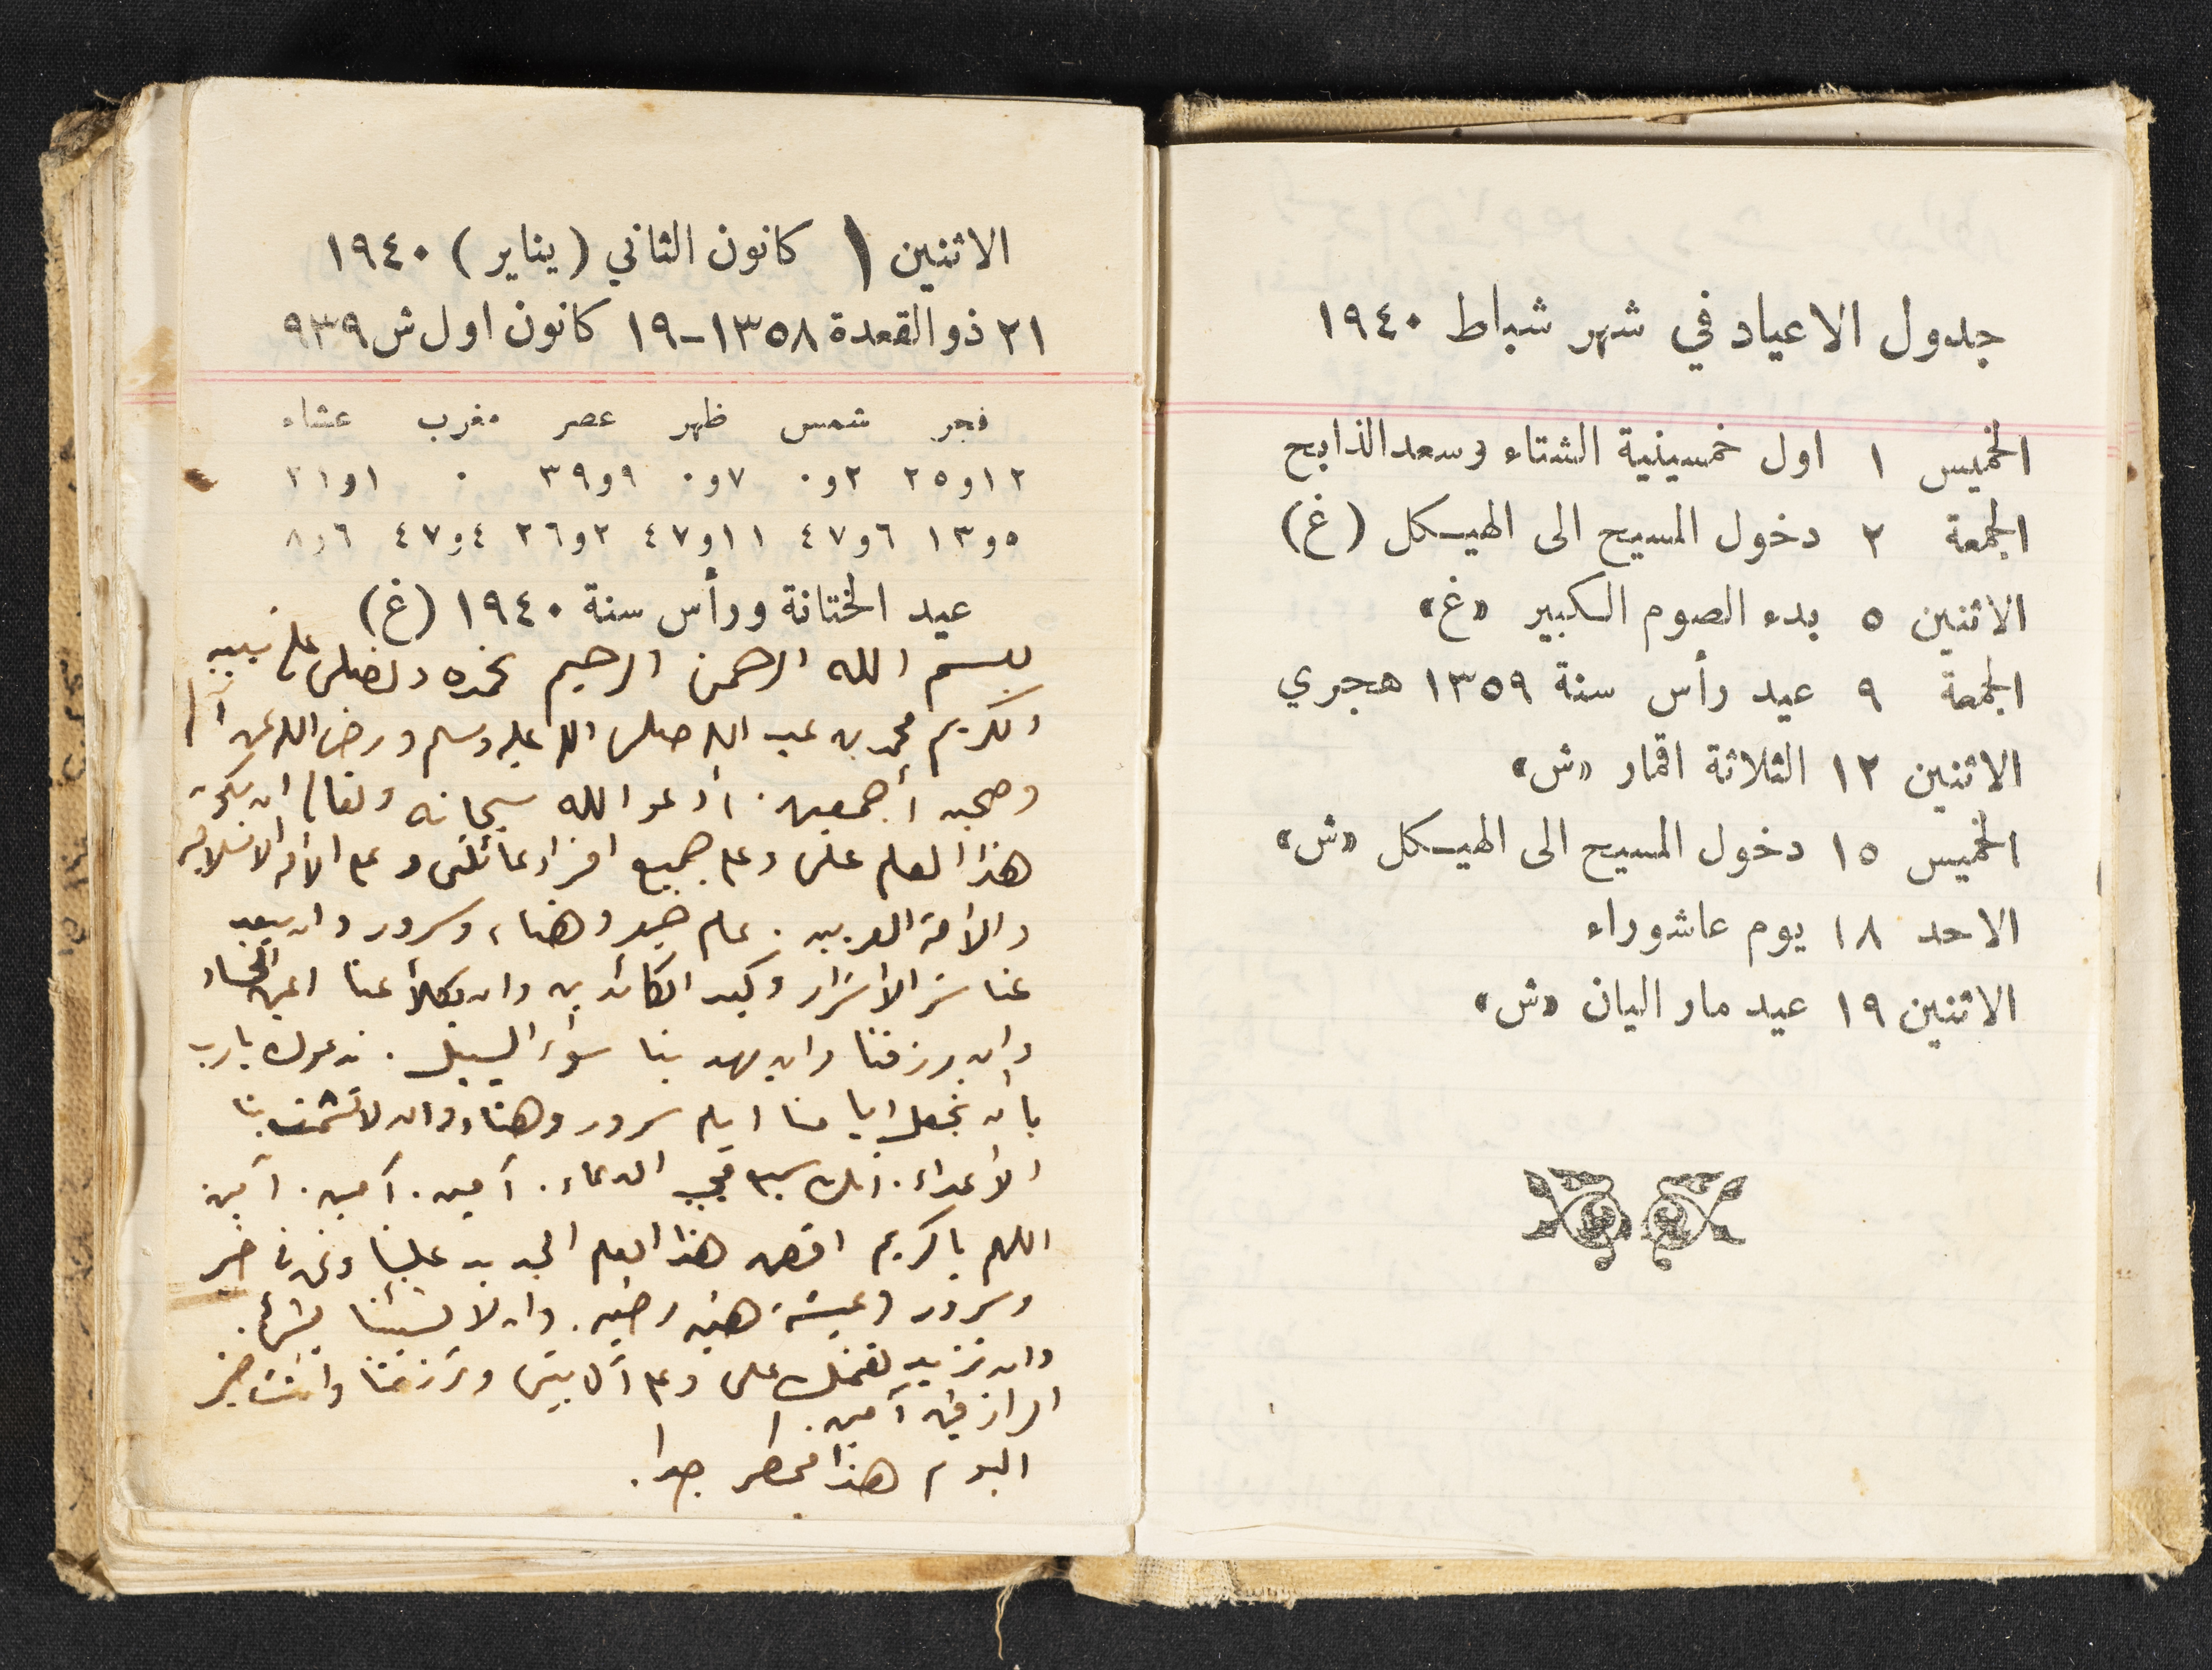 جدول الاعياد في شهر شباط ١٩٤٠
الخميس ١ اول خمسينية الشتاء وسعد الذابح
الجمعة ٢ دخول المسيح الى الهيكل (غ)
الاثنين ٥ بدء الصوم الكبير «غ»
الجمعة ٩ عيد رأس سنة ١٣٥٩ هجري
الاثنين ١٢ الثلاثة اقمار «ش»
الخميس ١٥ دخول المسيح الى الهيكل «ش»
الاحد ١٨ يوم عاشوراء
الاثنين ١٩ عيد مار اليان «ش»
الاثنين ١ كانون الثاني (يناير) ١٩٤٠
٢١ ذو القعدة ١٣٥٨-١٩ كانون اول ش ٩٣٩
فجر شمس ظهر عصر مغرب عشاء
١٢و٢٥ ٢و٠ ٧و٠ ٩و٣٩ ٠ ١و٢١
٥و١٣ ٦و٤٧ ١١و٤٧ ٢و٢٦ ٤و٤٧ ٦و٨
عيد الختانة ورأس سنة ١٩٤٠ (غ)
بسم الله الرحمن الرحيم نحمده ونصلى على نبيه
الكريم محمد بن عبد الله صلى الله عليه وسلم ورضى الله عن آله
وصحبه أجمعين. أدعو الله سبحانه وتعالى ان يكون
هذا العام على وعلى جميع افراد عائلتى وعلى الأمة الاسلامية
والأمة العربية. عام خير وهناء وسرور وان يبعد
عنا شر الأشرار وكيد الكائدين وان يكلأ عنا اعين الحساد
وان يرزقنا وان يهد بنا سواء السبيل. ندعوك يارب
بان تجعل ايامنا ايام سرور وهناء وان لا تشمت بنا
الأعداء. انك سميع مجيب الدعاء. آمين. آمين. آمين
اللهم يا كريم اقض هذا العام الجديد علينا ونحن في خير
وسرور وعيشة هنية رضية. وان لا تسيئنا بشئ.
وان تزيد نعمتك على وعلى آل بيتى وترزقنا وانت خير
الرازقين آمين.
اليوم هذا ممطر جدا.